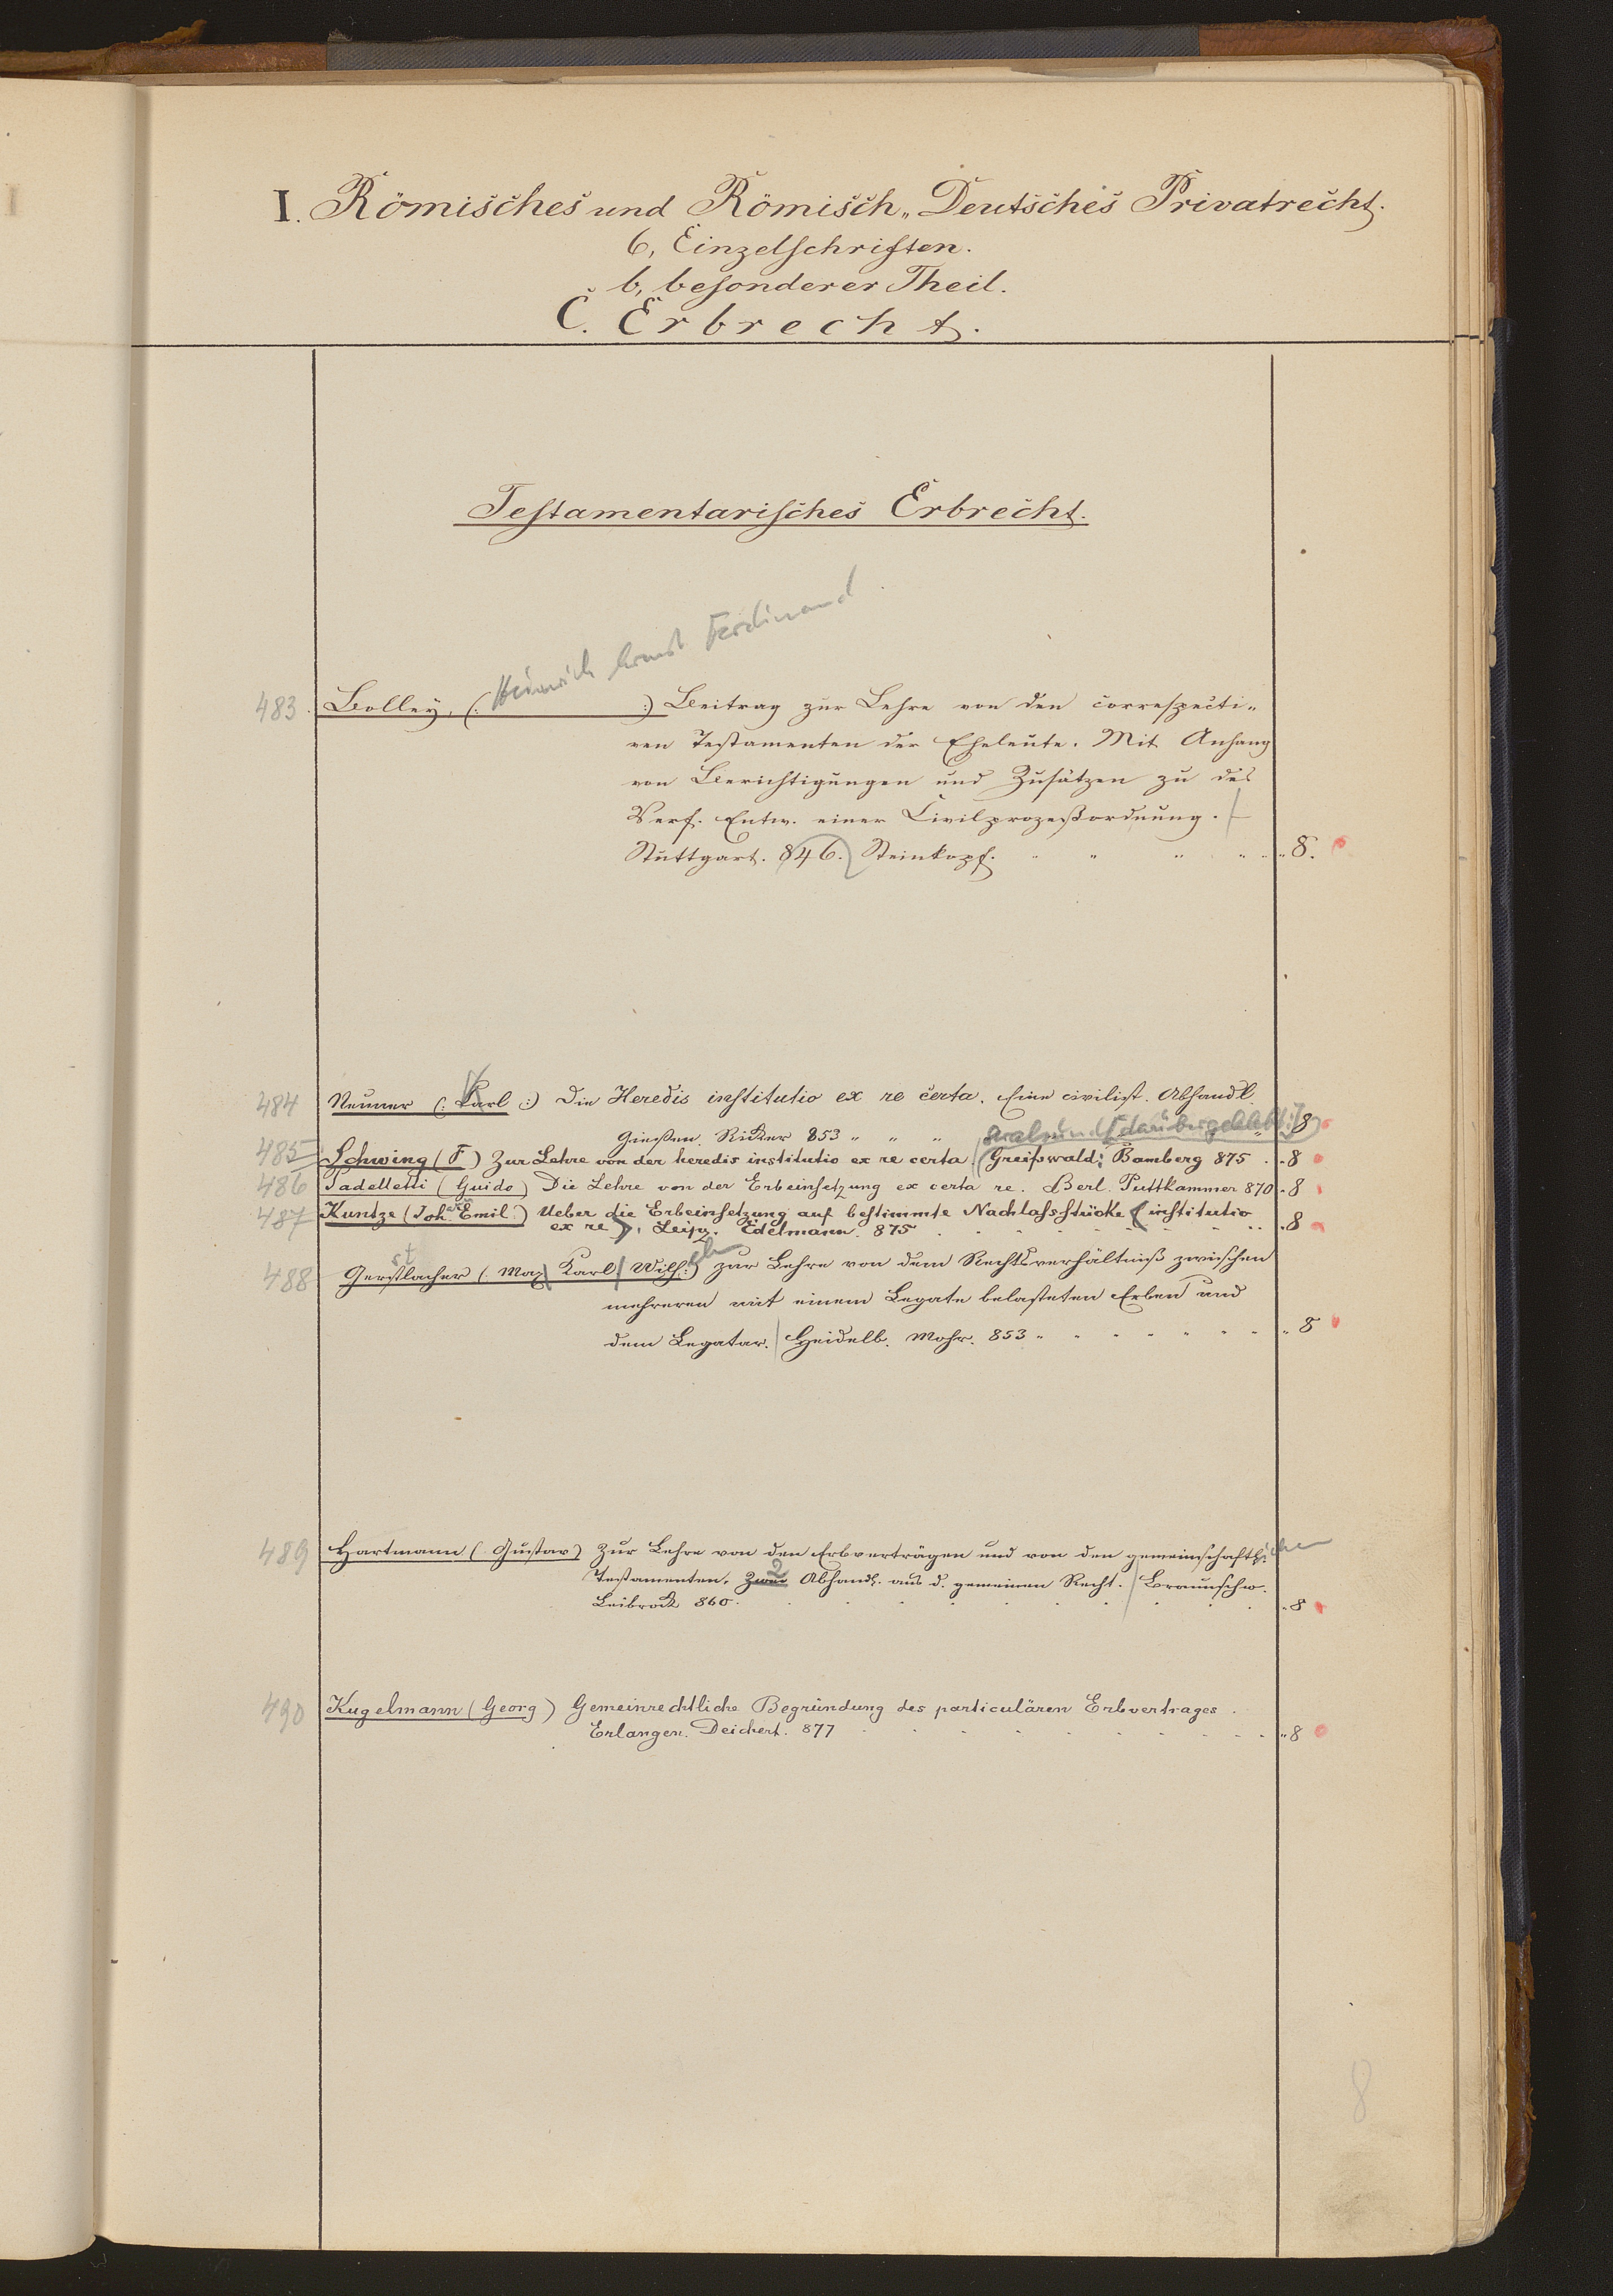 I. Römisches und Römisch-Deutsches Privatrecht.
6, Einzelschriften.
b, besonderer Theil.
C. Erbrecht.
Testamentarisches Erbrecht.
Heinrich Ernst Ferdinand
483 Bolley, (: :) Beitrag zur Lehre von den correspecti-
ven Testamenten der Eheleute. Mit Anhang
von Berichtigungen und Zusätzen zu des
Verf. Entw. einer Civilprozeßordnung.
Stuttgart. 846. Steinkopf. 8.
484 Neuner (: Karl :) Die Heredis institutio ex re certa. Eine civilist. Abhandl.
Gießen. Ricker 853 8
Stralsund [darübergeklebt:]
485 Schwing (F) Zur Lehre von der heredis institutio ex re certa. Greifswald: Bamberg 875 8
486 Padelletti (Guido) Die Lehre von der Erbeinsetzung ex certa re. Berl. Puttkammer 870 8
487 Kuntze (Joh. Emil) Ueber die Erbeinsetzung auf bestimmte Nachlassstücke (institutio
ex re). Leipz. Edelmann. 875 8
488 Gerstlacher (Max Karl Wilh:) zur Lehre von dem Rechtsverhältniß zwischen
mehreren mit einem Legate belasteten Erben und
dem Legatar. Heidelb. Mohr. 853 8
489 Hartmann (Gustav) Zur Lehre von den Erbverträgen und von den gemeinschaftlichen
Testamenten. Zwei 2 Abhandl. aus d. gemeinen Recht. Braunschw.
Leibrock 860. 8
490 Kugelmann (Georg) Gemeinrechtliche Begründung des particulären Erbvertrages.
Erlangen. Deichert. 877 8
8